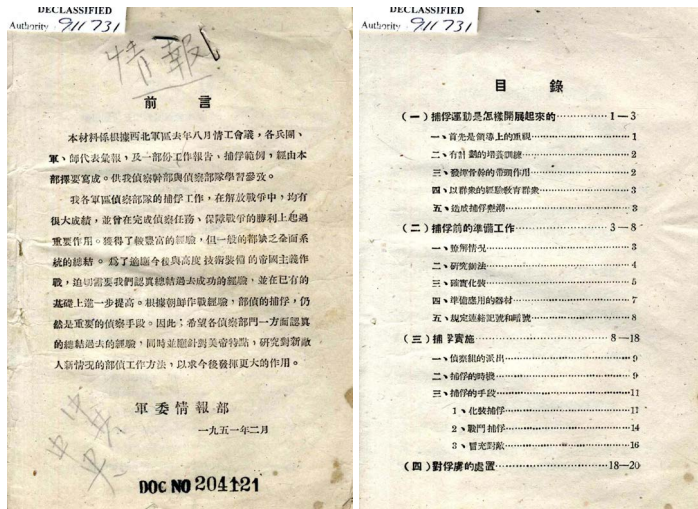 DECLASSIFIED
Authority 911731
情報
前言
本材料係根據西北軍區去年八月情工會議，各兵團、
軍、師代表彙報，及一部份工作報告、捕俘範例，經由本
部擇要寫成。供我偵察幹部與偵察部隊學習參攷。
我各軍區偵察部隊的捕俘工作，在解放戰爭中，均有
很大成績，並曾在完成偵察任務、保障戰爭的勝利上起過
重要作用。獲得了較豐富的經驗，但一般的都缺乏全面系
統的總結。爲了適應今後與高度技術裝備的帝國主義作
戰，迫切需要我們認真總結過去成功的經驗，並在已有的
基礎上進一步提高。根據朝鮮作戰經驗，部偵的捕俘，仍
然是重要的偵察手段。因此；希望各偵察部門一方面認真
的總結過去的經驗，同時並應針對美帝特點，研究對新敵
人新情況的部偵工作方法，以求今後發揮更大的作用。
軍委情報部
一九五一年二月
DOC NO 204121
DECLASSIFIED
Authority 911731
目錄
(一)捕俘運動是怎樣開展起來的…………1—3
一、首先是領導上的重視…………1
二、有計劃的培養訓練…………2
三、發揮骨幹的帶頭作用…………2
四、以群衆的經驗教育群衆…………3
五、造成捕俘熱潮…………3
(二)捕俘前的準備工作…………3—8
一、瞭解情况…………3
二、研究辦法…………4
三、確實化裝…………5
四、準備應用的器材…………7
五、規定連絡記號和暗號…………8
(三)捕俘實施…………8—18
一、偵察組的派出…………9
二、捕俘的時機…………9
三、捕俘的手段…………11
1、化裝捕俘…………11
2、戰鬥捕俘…………14
3、冒充對敵…………16
(四)對俘虜的處置…………18—20